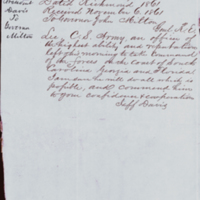 President
Davis
To
Governor
Milton
Dated Richmond 1861
Received November 6 1861
To Governor John Milton
Genl R. E.
Lee, C. S. Army, an officer of
the highest ability and reputation
left this morning to take command
of the forces on the coast of South
Carolina Georgia and Florida I
am sure he will do all which is
possible, and commend him
to your confidence & cooperation
Jeff Davis